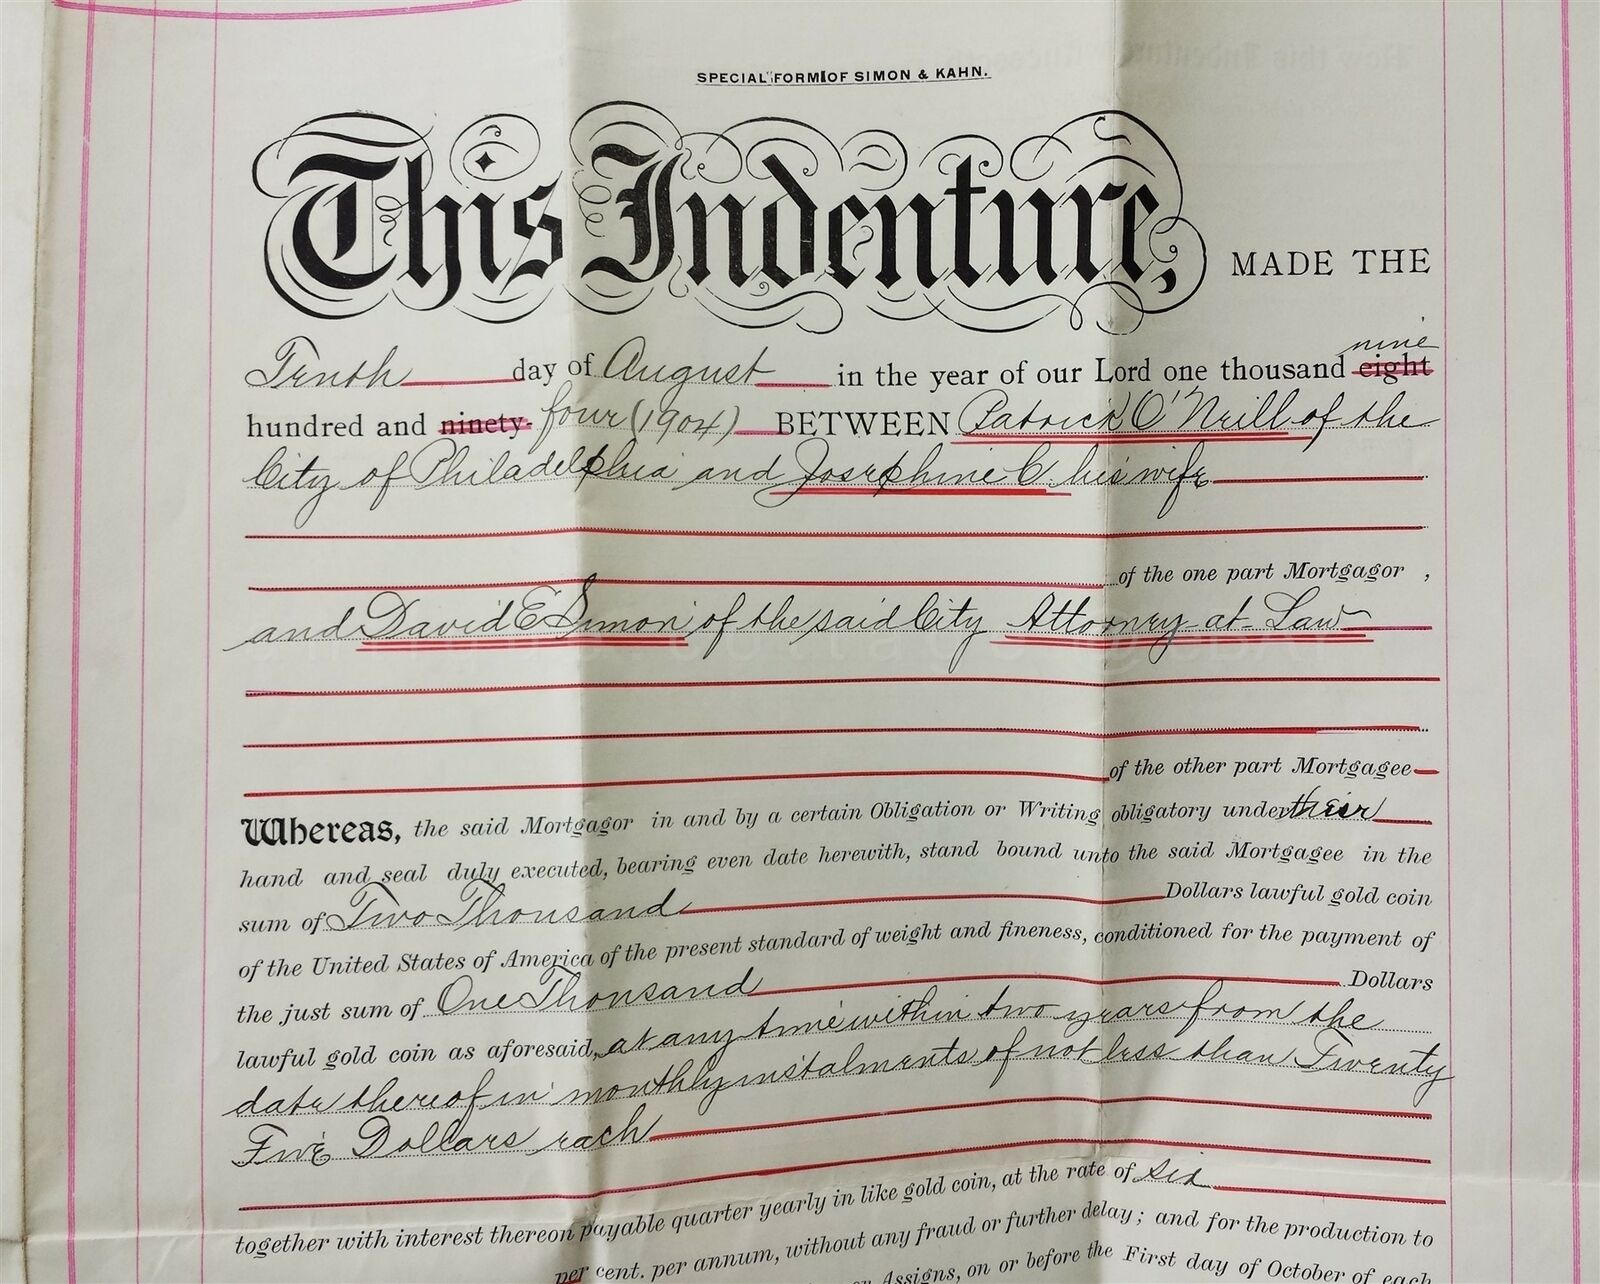 SPECIAL FORM OF SIMON & KAHN.
This Indenture, MADE THE
nine
Tenth day of August in the year of our Lord one thousand eight
hundred and ninety- four (1904) BETWEEN Patrick O'Neill of the
City of Philadelphia and Josephine C. his wife
of the one part Mortgagor ,
and David E Simon of the said City Attorney-at-Law
of the other part Mortgagee
Whereas, the said Mortgagor in and by a certain Obligation or Writing obligatory under their
hand and seal duly executed, bearing even date herewith, stand bound unto the said Mortgagee in the
sum of Two Thousand Dollars lawful gold coin
of the United States of America of the present standard of weight and fineness, conditioned for the payment of
the just sum of One Thousand Dollars
lawful gold coin as aforesaid, at any time within two years from the
date thereof in monthly instalments of not less than Twenty
Five Dollars each
together with interest thereon payable quarter yearly in like gold coin, at the rate of six
per cent. per annum, without any fraud or further delay; and for the production to
or Assigns, on or before the First day of October of each